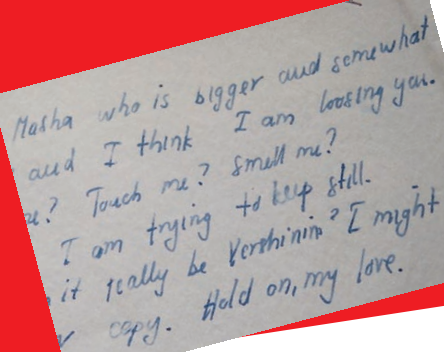 Masha who is bigger and somewhat
and I think I am loosing you.
? Touch me? Smell me?
I am trying to keep still.
it really be Vershinin? I might
copy. Hold on, my love.